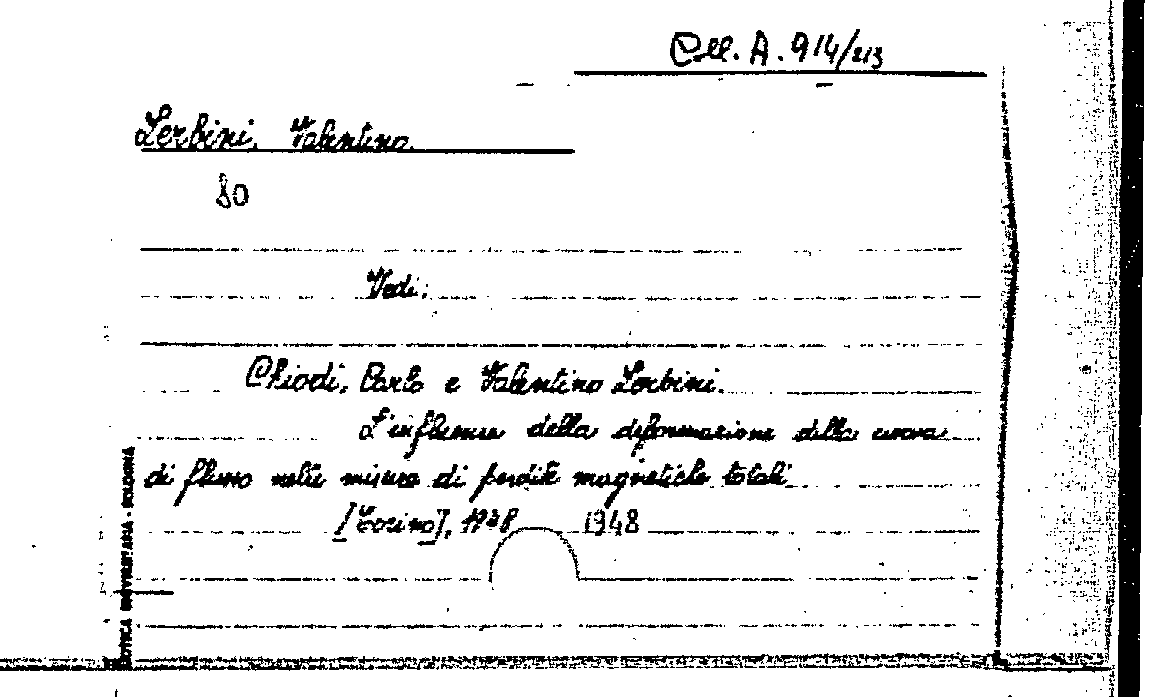 Coll. A. 914/213
Zerbini, Valentino
80
Vedi:
Chiodi, Carlo e Valentino Zerbini.
L'influenza della deformazione della curva
di flusso nelle misure di perdite magnetiche totali
[Torino], 1948 1948
BOLOGNA